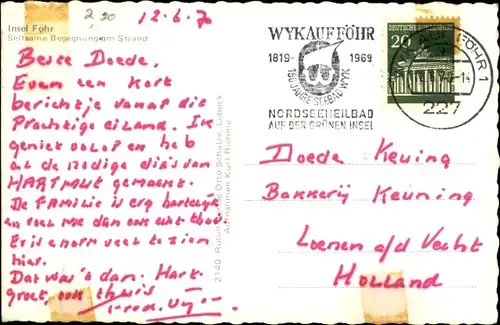 2,20
12.6.70
Insel Föhr
Seltsame Begegnung am Strand
Beste Doede,
Even een kort
berichtje vanaf dit
Prachtige eiland. Ik
geniet volop en heb
al de nodige dia's van
HARTMUT gemaakt.
De FAMILIE is erg hartelijk
en voel me dan ook echt thuis.
Er is enorm veel te zien
hier.
Dat was 't dan. Hart.
groet, ook thuis
2140 - Rudolf Otto Schulze, Lübeck
Aufnahmen Kurt Riethmü
WYK AUF FÖHR
1819- 1969
150 JAHRE SEEBAD WYK
NORDSEEHEILBAD
AUF DER GRÜNEN INSEL
DEUTSCHE BUNDESPOST
20
FÖHR 1
227
Doede Keuning
Bakkerij Keuning
Loenen a/d Vecht
HOLLAND